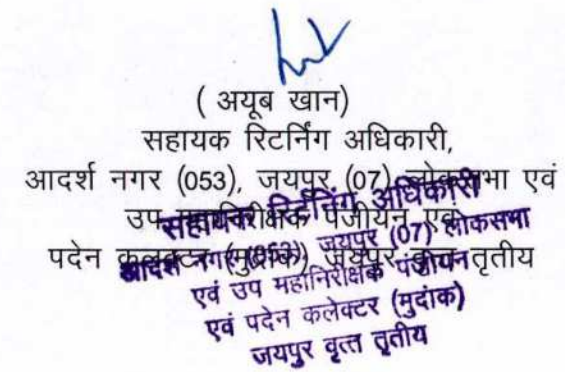 ( अयूब खान)
सहायक रिटर्निंग अधिकारी,
आदर्श नगर (053), जयपुर (07) लोकसभा एवं
उप महानिरीक्षक पंजीयन एवं
पदेन कलक्टर (मुद्रांक) जयपुर वृत्त तृतीय
सहायक रिटर्निंग अधिकारी
आदर्श नगर (053) जयपुर (07) लोकसभा
एवं उप महानिरीक्षक पंजीयन
एवं पदेन कलेक्टर (मुदांक)
जयपुर वृत्त तृतीय